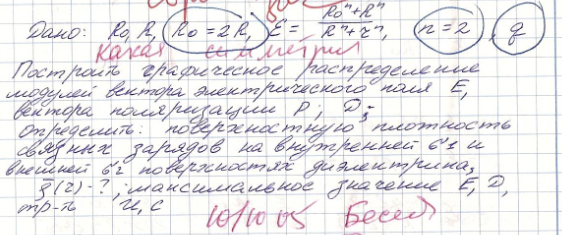 Дано: R₀, R, R₀ = 2R, ε = (R₀ⁿ + Rⁿ)/(Rⁿ + rⁿ), n = 2, q
Какая симетрия
Построить графическое распределение
модулей вектора электрического поля E,
вектора поляризации P; D;
определить: поверхностную плотность
связных зарядов на внутренней σ'₁ и
внешней σ'₂ поверхностях диэлектрика,
(r) - ?, максимальное значение E, D,
10/10 05